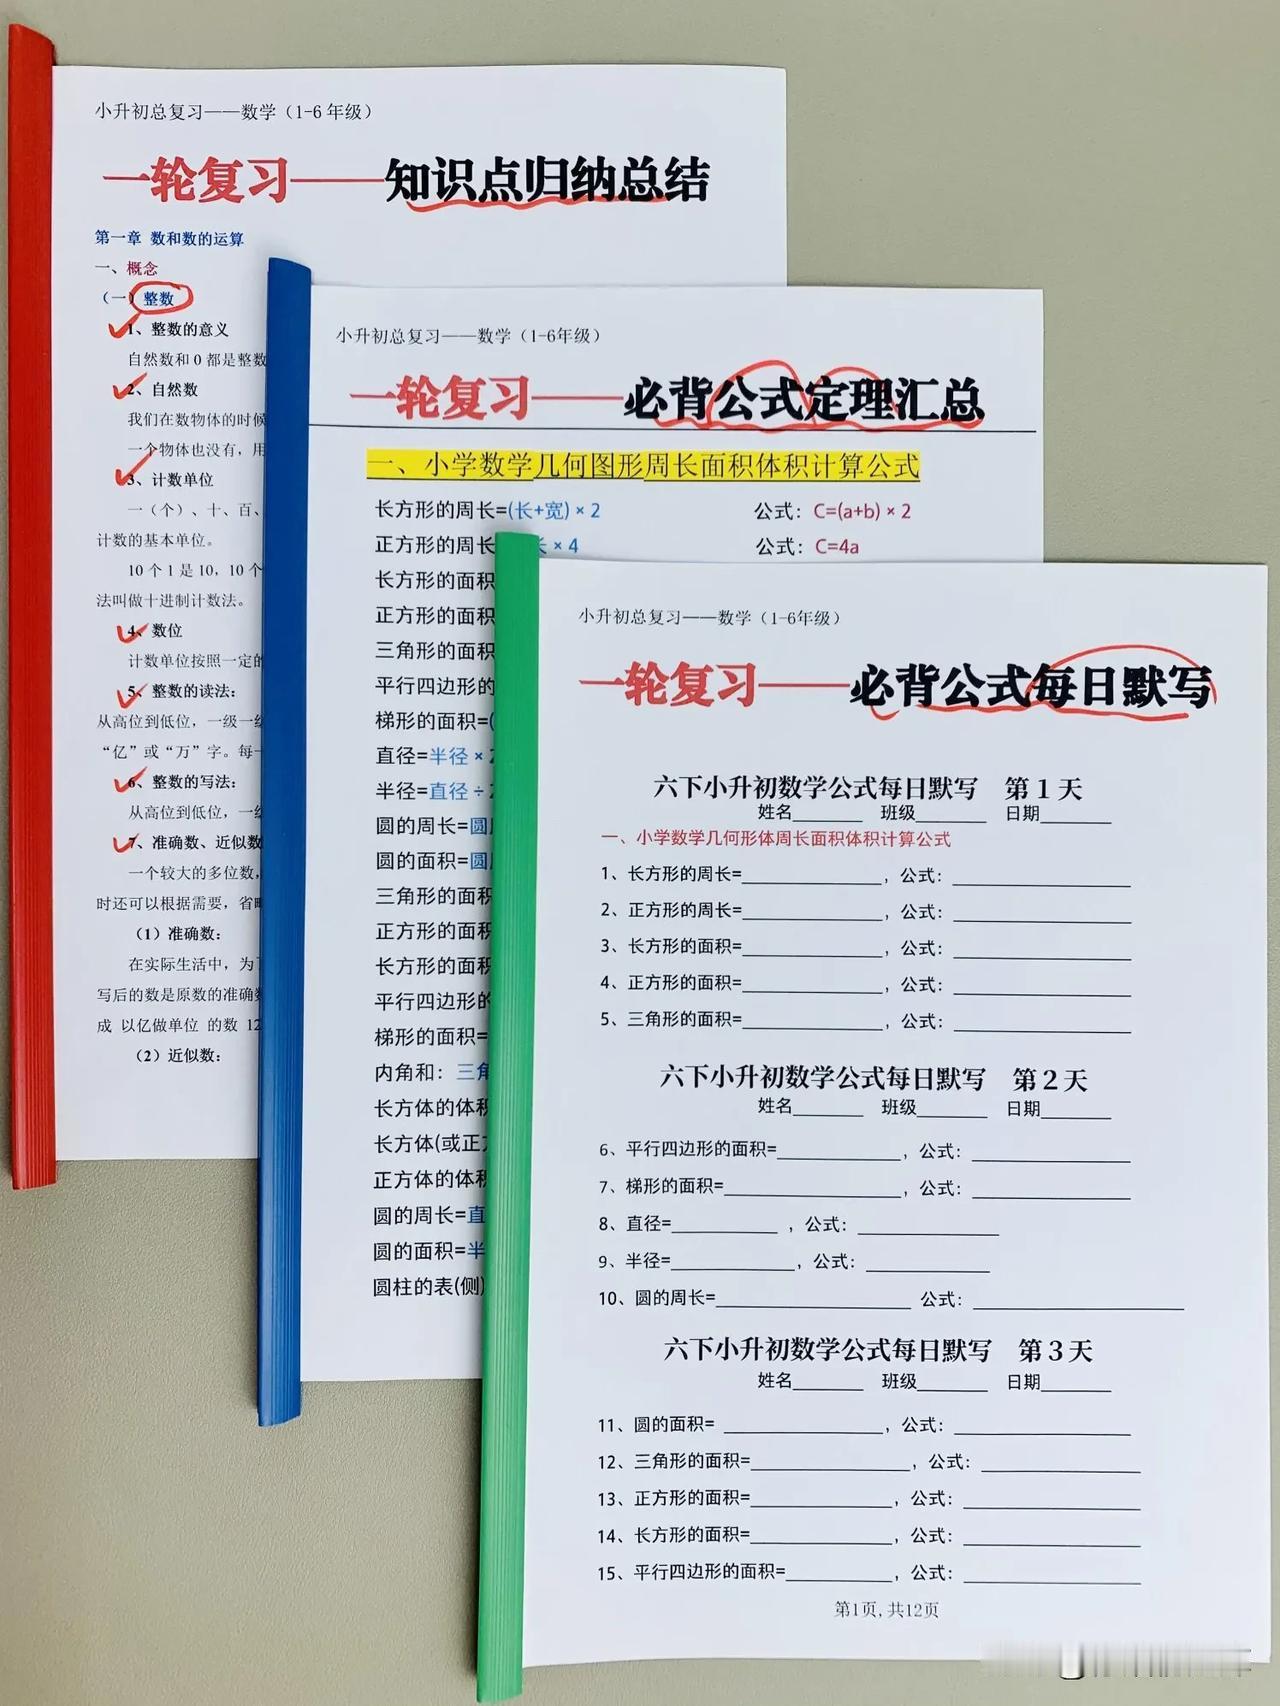 小升初总复习——数学（1-6 年级）
一轮复习——知识点归纳总结
第一章 数和数的运算
一、概念
（一）整数
1、整数的意义
自然数和 0 都是整数
2、自然数
我们在数物体的时候
一个物体也没有，用
3、计数单位
一（个）、十、百、
计数的基本单位。
10 个 1 是 10，10 个
法叫做十进制计数法。
4、数位
计数单位按照一定的
5、整数的读法：
从高位到低位，一级一级
“亿”或“万”字。每一
6、整数的写法：
从高位到低位，一级
7、准确数、近似数
一个较大的多位数，
时还可以根据需要，省略
（1）准确数：
在实际生活中，为了
写后的数是原数的准确数
成 以亿做单位 的数 12
（2）近似数：
小升初总复习——数学（1-6年级）
一轮复习——必背公式定理汇总
一、小学数学几何图形周长面积体积计算公式
长方形的周长=(长+宽) × 2 公式：C=(a+b) × 2
正方形的周长 长 × 4 公式：C=4a
长方形的面积
正方形的面积
三角形的面积
平行四边形的
梯形的面积=(
直径=半径 × 2
半径=直径 ÷ 2
圆的周长=圆
圆的面积=圆
三角形的面积
正方形的面积
长方形的面积
平行四边形的
梯形的面积=
内角和：三角
长方体的体积
长方体(或正方
正方体的体积
圆的周长=直
圆的面积=半
圆柱的表(侧)
小升初总复习——数学（1-6年级）
一轮复习——必背公式每日默写
六下小升初数学公式每日默写 第 1 天
姓名______ 班级______ 日期______
一、小学数学几何形体周长面积体积计算公式
1、长方形的周长=____________，公式：____________
2、正方形的周长=____________，公式：____________
3、长方形的面积=____________，公式：____________
4、正方形的面积=____________，公式：____________
5、三角形的面积=____________，公式：____________
六下小升初数学公式每日默写 第 2 天
姓名______ 班级______ 日期______
6、平行四边形的面积=____________，公式：____________
7、梯形的面积=____________，公式：____________
8、直径=____________，公式：____________
9、半径=____________，公式：____________
10、圆的周长=____________ 公式：____________
六下小升初数学公式每日默写 第 3 天
姓名______ 班级______ 日期______
11、圆的面积=____________，公式：____________
12、三角形的面积=____________，公式：____________
13、正方形的面积=____________，公式：____________
14、长方形的面积=____________，公式：____________
15、平行四边形的面积=____________，公式：____________
第1页,共12页